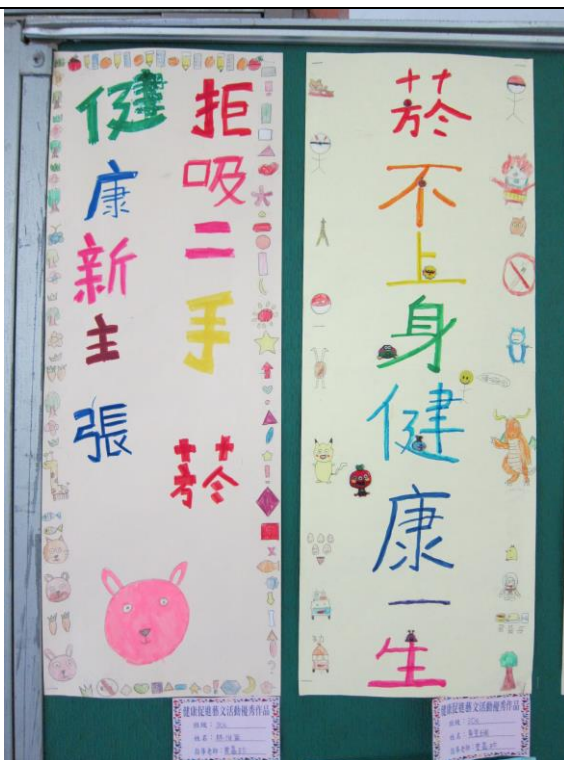 拒吸二手菸
健康新主張
菸不上身健康一生
健康促進藝文活動優秀作品
班級:
姓名:
指導老師:
健康促進藝文活動優秀作品
班級:
姓名:
指導老師: